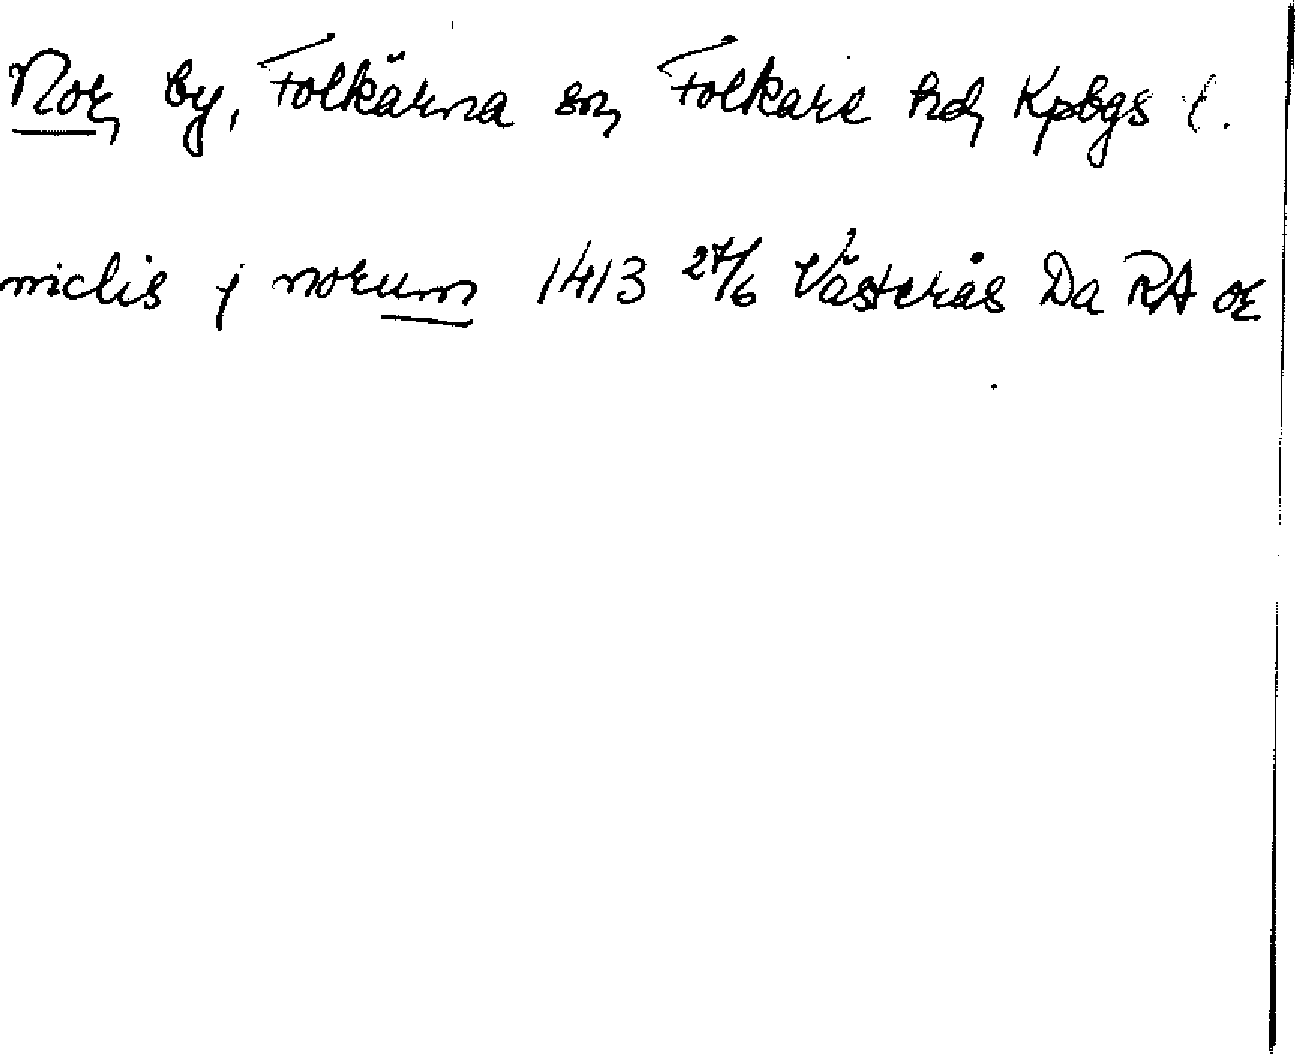 Nor, by, Folkärna sn, Folkare hd, Kpbgs l.
niclis j norum 1413 27/6 Västerås Da RA or